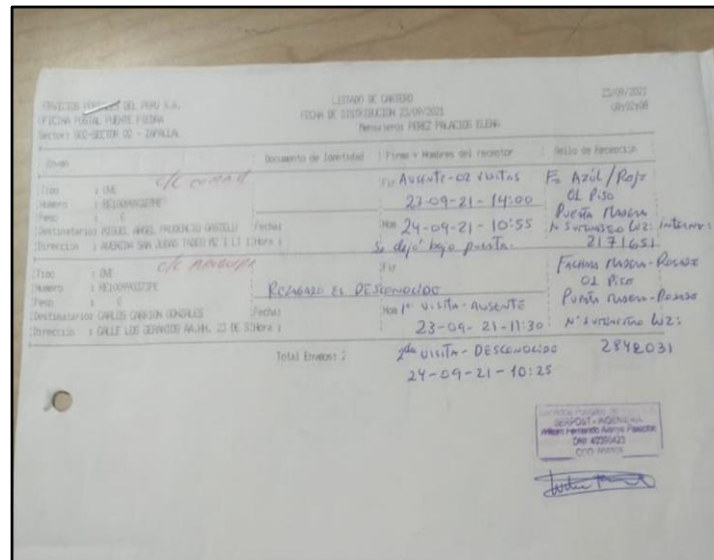 SERVICIOS POSTALES DEL PERU S.A.
OFICINA POSTAL PUENTE PIEDRA
Sector: S02-SECTOR 02 - ZAPALLAL
LISTADO DE CARTERO
FECHA DE DISTRIBUCION 23/09/2021
Mensajero: PEREZ PALACIOS ELENA
23/09/2021
Envio
Documento de Identidad
Firma y Nombres del receptor
Sello de Recepción
Tipo : CME
Numero :
Peso :
Destinatario: MIGUEL ANGEL PRUDENCIO GASTELU
Dirección : AVENIDA SAN JUDAS TADEO MZ I LT 1
Fecha:
Hora :
Fir AUSENTE-02 VISITAS
23-09-21-14:00
Nom 24-09-21-10:55
Se dejó bajo puerta.
Fa Azúl / Rojo
01 Piso
Puerta Madera
N° Suministro Luz:
2171651
Tipo : CME
Numero :
Peso :
Destinatario: CARLOS CARRION GONZALES
Dirección : CALLE LOS GERANIOS AA.HH. 23 DE S
Fecha:
Hora :
Rechazado es Desconocido
Fir
Nom 1ª VISITA-AUSENTE
23-09-21-11:30
2da VISITA-DESCONOCIDO
24-09-21-10:25
Fachada Madera-Rosado
01 Piso
Puerta Madera-Rosado
N° Suministro Luz:
2842031
Total Envios: 2
SERPOST